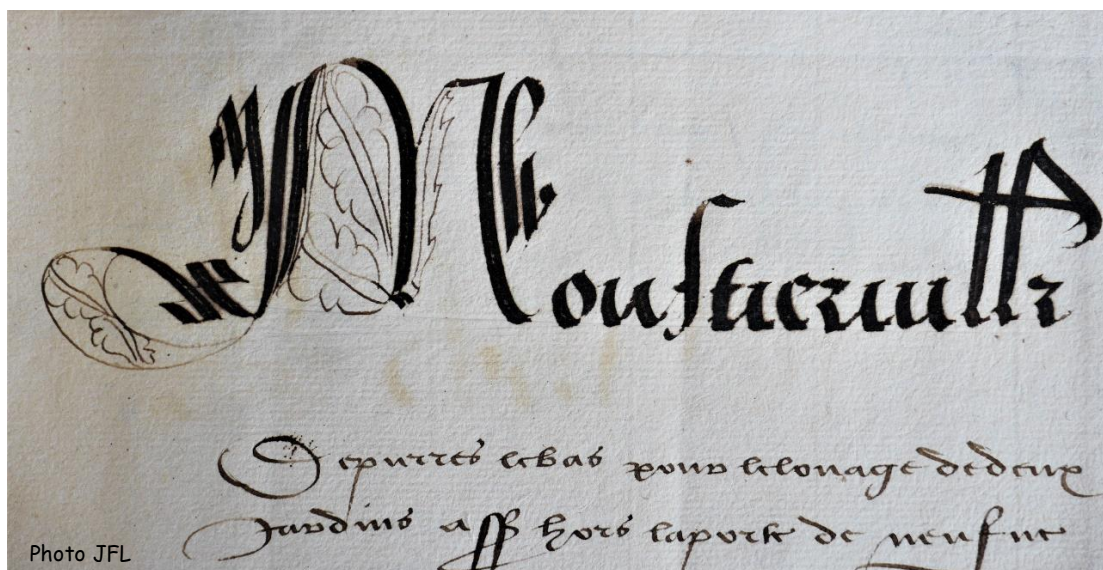 Moustieruille
De pierres lebas pour le louage de deux
Jardins ass hors la porte de neufue
Photo JFL